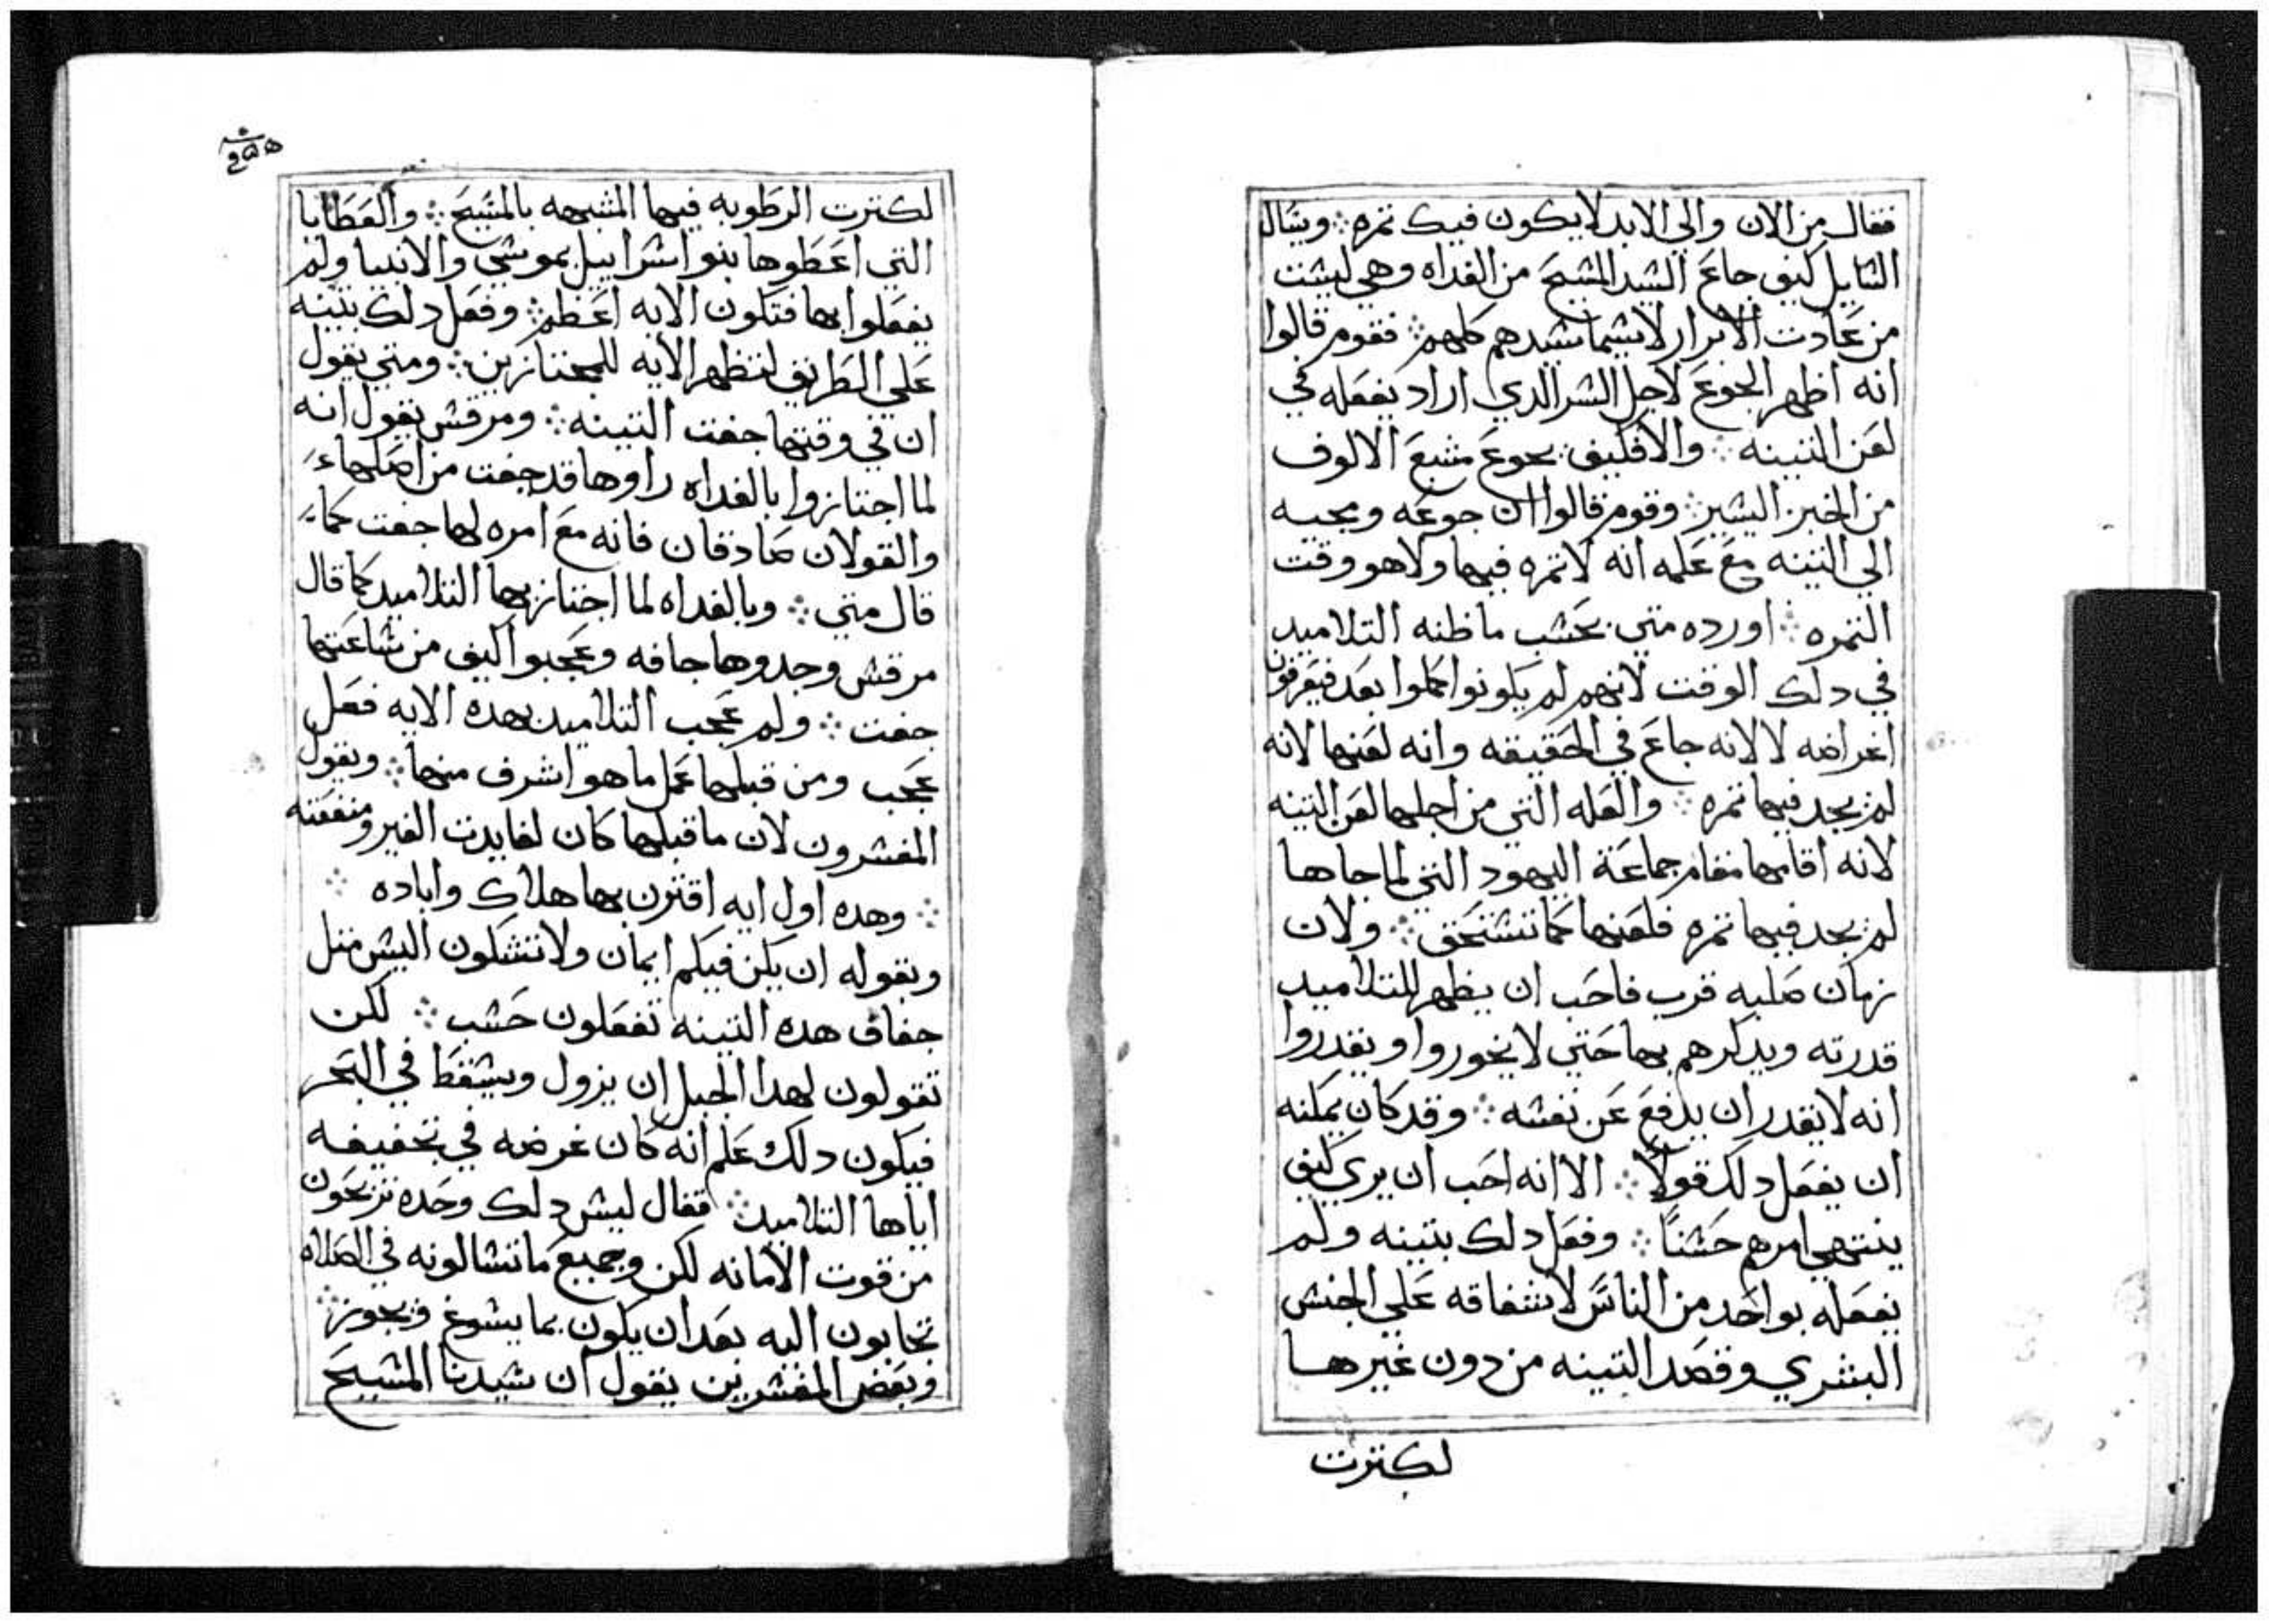 فقال من الان والي الابد لا يكون فيك تمره ⁘ ويشال
الشايل كيف جاع الشيد المشيح من الغداه وهي ليشت
من عادت الابرار لاشيما شيدهم كلهم ⁘ فقوم قالوا
انه اظهر الجوع لاجل الشر الدي اراد يفعله في
لعن التينه ⁘ والا فكيف يجوع مشبع الالوف
من الخبز اليشير ⁘ وقوم قالوا ان جوعه ومجيه
الي التينه مع علمه انه لا تمره فيها ولا هو وقت
التمره ⁘ اورده متي بحشب ما ظنه التلاميد
في دلك الوقت لانهم لم يكونوا كملوا بعد فيعرفون
اغراضه لا لانه جاع في الحقيقه وانه لعنها لانه
لم يجد فيها تمره ⁘ والعله التي من اجلها لعن التينه
لانه اقامها مقام جماعة اليهود التي لما جاها
لم يجد فيها تمره فلعنها كما تشتحق ⁘ ولان
زمان صلبه قرب فاحب ان يظهر للتلاميد
قدرته ويدكرهم بها حتي لا يخوروا ويقدروا
انه لا يقدر ان يدفع عن نفشه ⁘ وقد كان يمكنه
ان يفعل دلك قولاً ⁘ الا انه احب ان يري كيف
ينتهي امرهم حشناً ⁘ وفعل دلك بتينه ولم
يفعله بواحد من الناش لاشفاقه علي الجنش
البشري وقصد التينه من دون غيرها
لكترت
لكترت الرطوبه فيها المشبهه بالمشيح ⁘ والعطايا
التي اعطوها بنو اشراييل بموشي والانبيا ولم
يفعلوا بها فتكون الايه اعظم ⁘ وفعل دلك بتينه
علي الطريق لتظهر الايه للمجتازين ⁘ ومتي يقول
ان في وقتها جفت التينه ⁘ ومرقش يقول انه
لما اجتازوا بالغداه راوها قد جفت من اصلها
والقولان صادقان فانه مع امره لها جفت كما
قال متي ⁘ وبالغداه لما اجتاز بها التلاميد كما قال
مرقش وجدوها جافه وعجبوا كيف من شاعتها
جفت ⁘ ولم عجب التلاميد بهده الايه فعل
عجب ومن قبلها عمل ما هو اشرف منها ⁘ ويقول
المفشرون لان ما قبلها كان لفايدت الغير ومنفعته
⁘ وهده اول ايه اقترن بها هلاك واباده ⁘
وبقوله ان يكن فيكم ايمان ولا تشكون اليش متل
جفاف هده التينه تفعلون حشب ⁘ لكن
تقولون لهدا الجبل ان يزول ويشقط في البحر
فيكون دلك علم انه كان غرضه في تجفيفه
اياها التلاميد ⁘ فقال ليش دلك وحده تربحون
من قوت الامانه لكن وجميع ما تشالونه في الصلاه
تجابون اليه بعد ان يكون بما يشوغ ويجوز ⁘
وبعض المفشرين يقول ان شيدنا المشيح